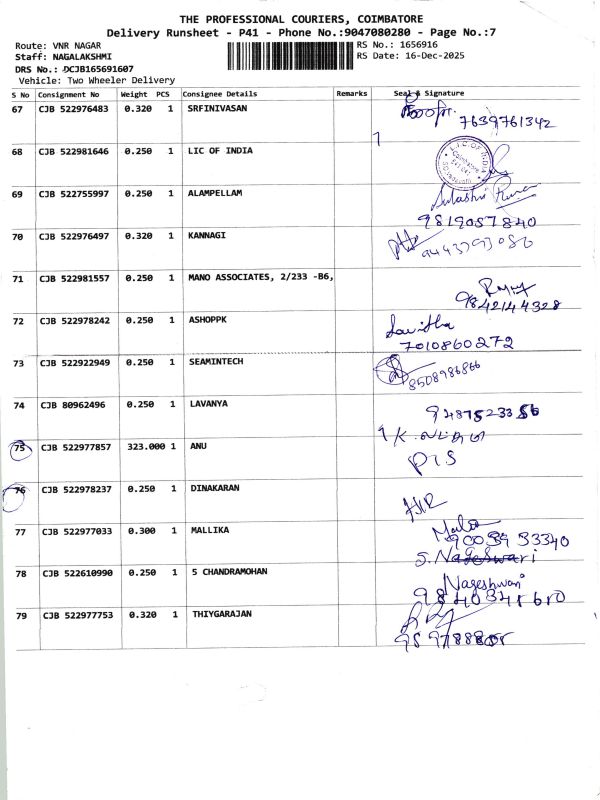 THE PROFESSIONAL COURIERS, COIMBATORE
Delivery Runsheet - P41 - Phone No.:9047080280 - Page No.:7
Route: VNR NAGAR
RS No.: 1656916
Staff: NAGALAKSHMI
RS Date: 16-Dec-2025
DRS No.: DCJB165691607
Vehicle: Two Wheeler Delivery
S No Consignment No Weight PCS Consignee Details Remarks Seal & Signature
67 CJB 522976483 0.320 1 SRFINIVASAN
7639761342
68 CJB 522981646 0.250 1 LIC OF INDIA
L.I.C. OF INDIA
Coimbatore
69 CJB 522755997 0.250 1 ALAMPELLAM
9819057840
70 CJB 522976497 0.320 1 KANNAGI
9443793086
71 CJB 522981557 0.250 1 MANO ASSOCIATES, 2/233 -B6,
9842144328
72 CJB 522978242 0.250 1 ASHOPPK
Savitha
7010860272
73 CJB 522922949 0.250 1 SEAMINTECH
8508986866
74 CJB 80962496 0.250 1 LAVANYA
9487523356
75 CJB 522977857 323.000 1 ANU
76 CJB 522978237 0.250 1 DINAKARAN
77 CJB 522977033 0.300 1 MALLIKA
Mala
9003933340
S. Nageswari
78 CJB 522610990 0.250 1 S CHANDRAMOHAN
Nageshwari
79 CJB 522977753 0.320 1 THIYGARAJAN